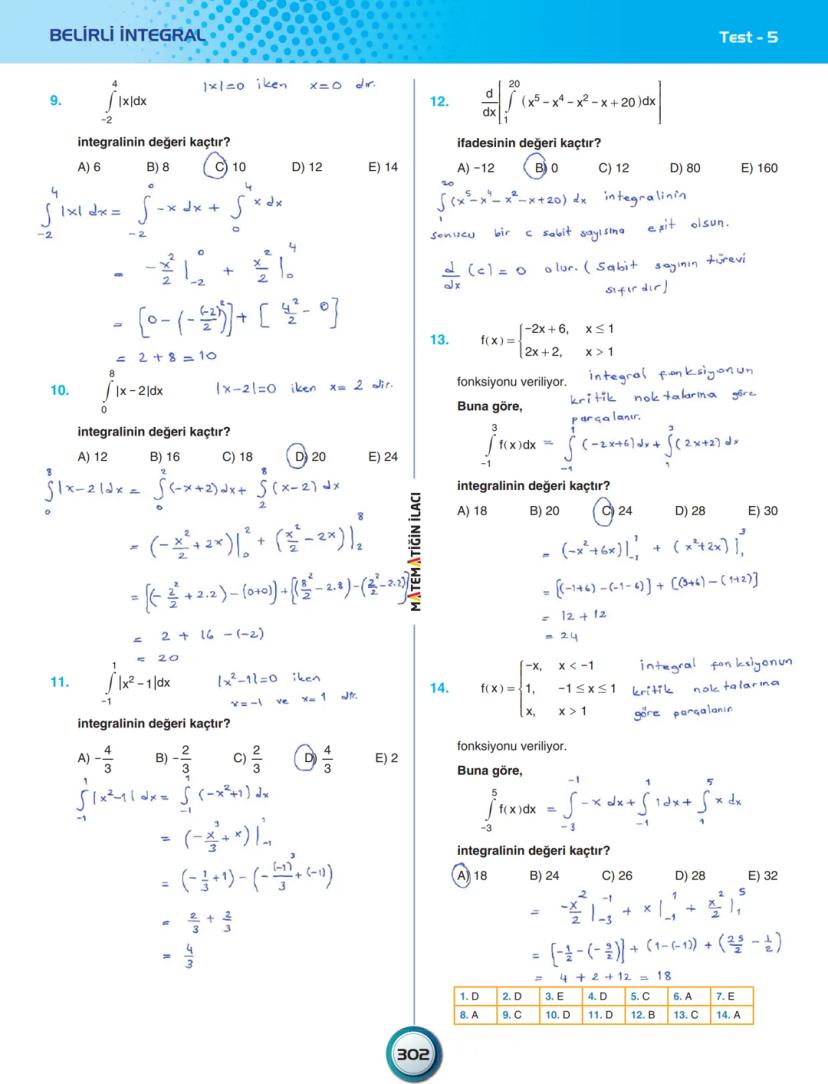 BELİRLİ İNTEGRAL
Test - 5
9. ∫_{-2}^{4} |x|dx |x|=0 iken x=0 dır.
integralinin değeri kaçtır?
A) 6 B) 8 C) 10 D) 12 E) 14
∫_{-2}^{4} |x| dx = ∫_{-2}^{0} -x dx + ∫_{0}^{4} x dx
= -x²/2 |_{-2}^{0} + x²/2 |_{0}^{4}
= [0-(-(-2)²/2)] + [4²/2 - 0]
= 2 + 8 = 10
10. ∫_{0}^{8} |x - 2|dx |x-2|=0 iken x= 2 dir.
integralinin değeri kaçtır?
A) 12 B) 16 C) 18 D) 20 E) 24
∫_{0}^{8} |x-2|dx = ∫_{0}^{2} (-x+2)dx + ∫_{2}^{8} (x-2) dx
= (-x²/2 + 2x)|_{0}^{2} + (x²/2 - 2x)|_{2}^{8}
= [(-2²/2 + 2.2) - (0+0)] + [(8²/2 - 2.8) - (2²/2 - 2.2)]
= 2 + 16 - (-2)
= 20
11. ∫_{-1}^{1} |x² - 1|dx |x²-1|=0 iken
x=-1 ve x=1 dir.
integralinin değeri kaçtır?
A) -4/3 B) -2/3 C) 2/3 D) 4/3 E) 2
∫_{-1}^{1} |x²-1| dx = ∫_{-1}^{1} (-x²+1) dx
= (-x³/3 + x)|_{-1}^{1}
= (-1/3 + 1) - (-(-1)³/3 + (-1))
= 2/3 + 2/3
= 4/3
MATEMATİĞİN İLACI
12. d/dx [∫_{1}^{20} (x⁵ - x⁴ - x² - x + 20)dx]
ifadesinin değeri kaçtır?
A) -12 B) 0 C) 12 D) 80 E) 160
∫_{1}^{20} (x⁵-x⁴-x²-x+20) dx integralinin
sonucu bir c sabit sayısına eşit olsun.
d/dx (c) = 0 olur. (Sabit sayının türevi
sıfırdır)
13. f(x) = { -2x + 6, x ≤ 1
2x + 2, x > 1
fonksiyonu veriliyor. integral fonksiyonun
kritik noktalarına göre
Buna göre, parçalanır.
∫_{-1}^{3} f(x)dx = ∫_{-1}^{1} (-2x+6)dx + ∫_{1}^{3} (2x+2) dx
integralinin değeri kaçtır?
A) 18 B) 20 C) 24 D) 28 E) 30
= (-x²+6x)|_{-1}^{1} + (x²+2x)|_{1}^{3}
= [(-1+6) - (-1-6)] + [(9+6) - (1+2)]
= 12 + 12
= 24
14. f(x) = { -x, x < -1
1, -1 ≤ x ≤ 1
x, x > 1
integral fonksiyonun
kritik noktalarına
göre parçalanır
fonksiyonu veriliyor.
Buna göre,
∫_{-3}^{5} f(x)dx = ∫_{-3}^{-1} -x dx + ∫_{-1}^{1} 1dx + ∫_{1}^{5} x dx
integralinin değeri kaçtır?
A) 18 B) 24 C) 26 D) 28 E) 32
= -x²/2 |_{-3}^{-1} + x |_{-1}^{1} + x²/2 |_{1}^{5}
= [-1/2 - (-9/2)] + (1-(-1)) + (25/2 - 1/2)
= 4 + 2 + 12 = 18
1. D 2. D 3. E 4. D 5. C 6. A 7. E
8. A 9. C 10. D 11. D 12. B 13. C 14. A
302